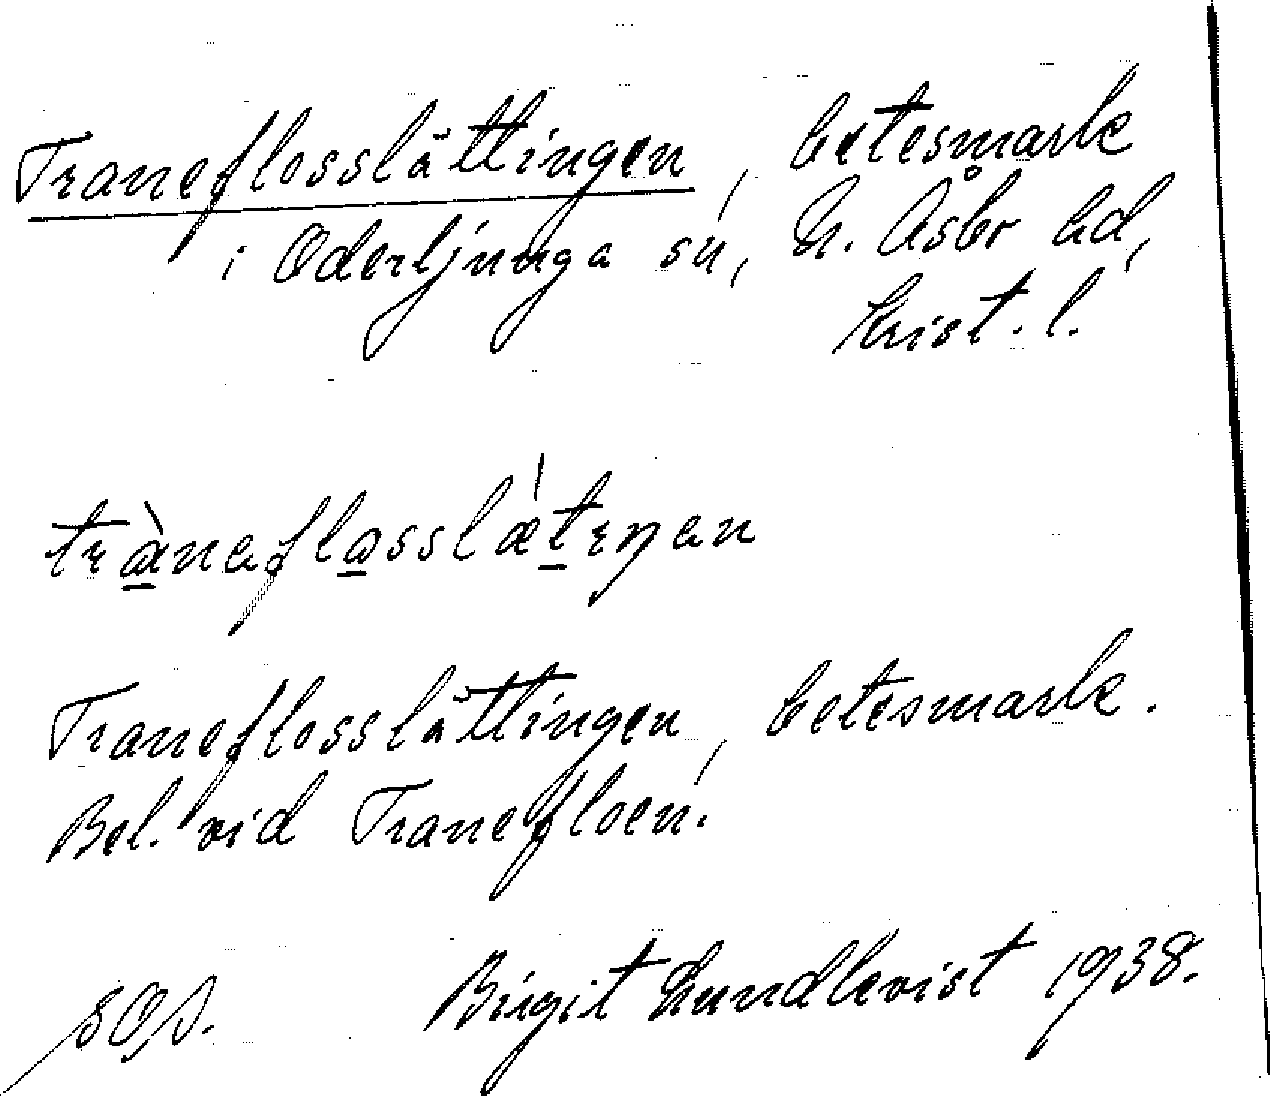 Traneflosslättingen, betesmark
i Oderljunga sn, N. Åsbo hd,
Krist. l.
tràneflossla̍tıŋen
Traneflosslättingen, betesmark.
Bel. vid Tranefloen.
SOS. Birgit Lundkvist 1938.